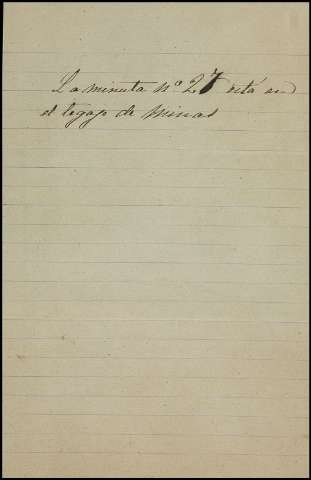 La minuta nº 27 está en
el legajo de Minas